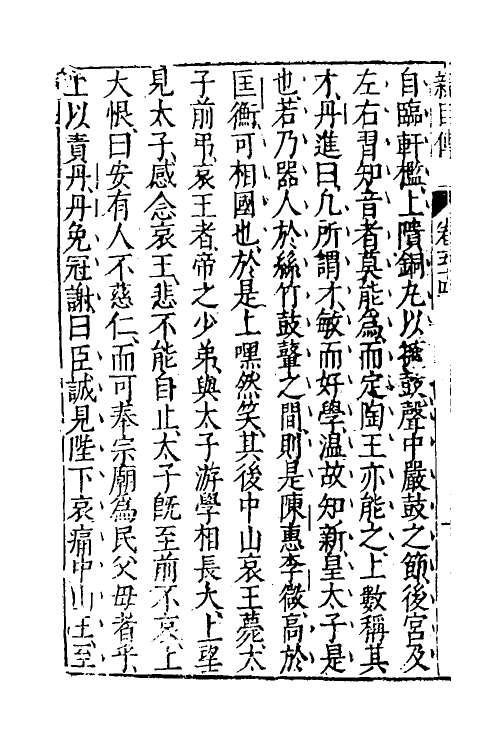 自臨軒檻上隤銅丸以擿鼓聲中嚴鼓之節後宮及
左右習知音者莫能為而定陶王亦能之上數稱其
才丹進曰凡所謂才敏而好學温故知新皇太子是
也若乃器人於絲竹鼓鼙之間則是陳惠李微高於
匡衡可相國也於是上嘿然笑其後中山哀王薨太
子前弔哀王者帝之少弟與太子游學相長大上望
見太子感念哀王悲不能自止太子旣至前不哀上
大恨曰安有人不慈仁而可奉宗廟為民父母者乎
上以責丹丹免冠謝曰臣誠見陛下哀痛中山王至